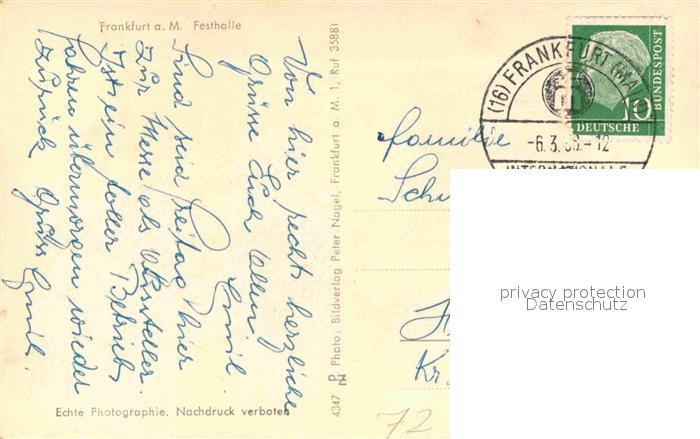 Frankfurt a. M. Festhalle
Von hier recht herzliche
Grüsse Euch allen
Emil
Sind seid Freitag hier
zur Messe als Aussteller.
Ist ein toller Betrieb
fahren übermorgen wieder
zurück. Gruss Emil.
Echte Photographie. Nachdruck verboten
4347 Photo: Bildverlag Peter Nagel, Frankfurt a. M. 1, Ruf 35881
(16) FRANKFURT (MAIN)
-6.3.  - 12
INTERNATIONALE
10
DEUTSCHE
BUNDESPOST
Familie
Sch
Kr.
72
privacy protection
Datenschutz